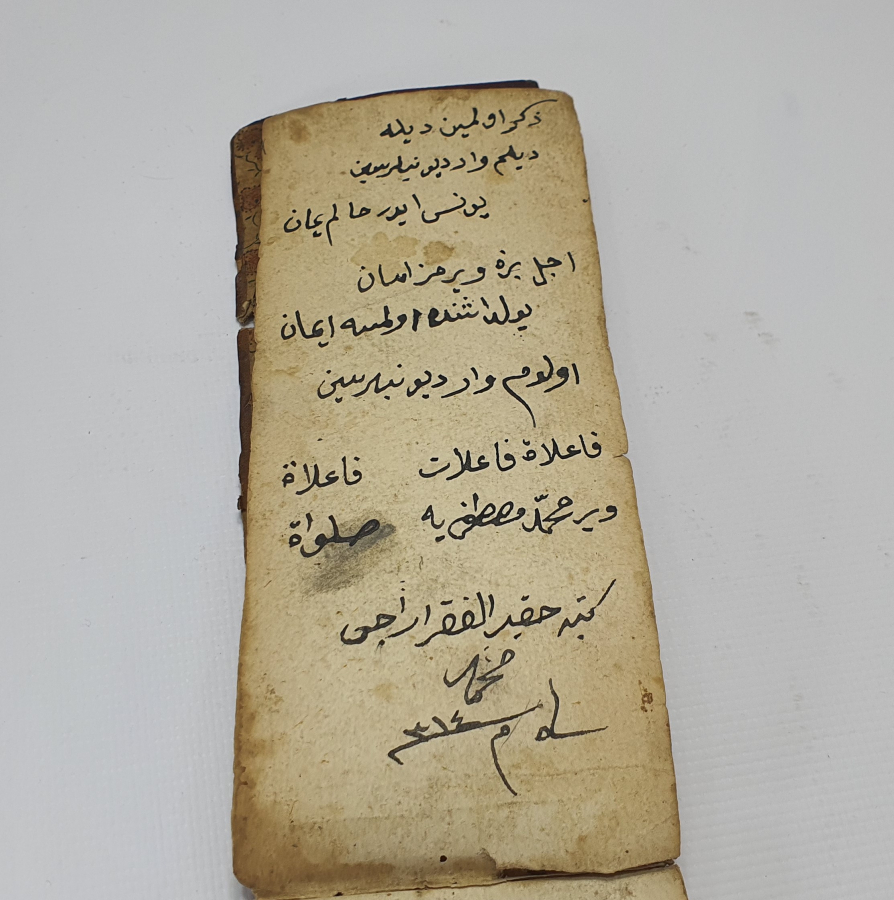 ذكر اولمين ديله
ديلم وار ديو نيلرسين
يونس ايدر حالم يمان
اجل بزه ويرمز امان
يولداشنده اولمسه ايمان
اولدم وار ديو نيلرسين
فاعلاة فاعلات فاعلاة
وير محمّد مصطفى يه صلواة
كتبه حقير الفقرا راجى
محمد
م ٣١٤